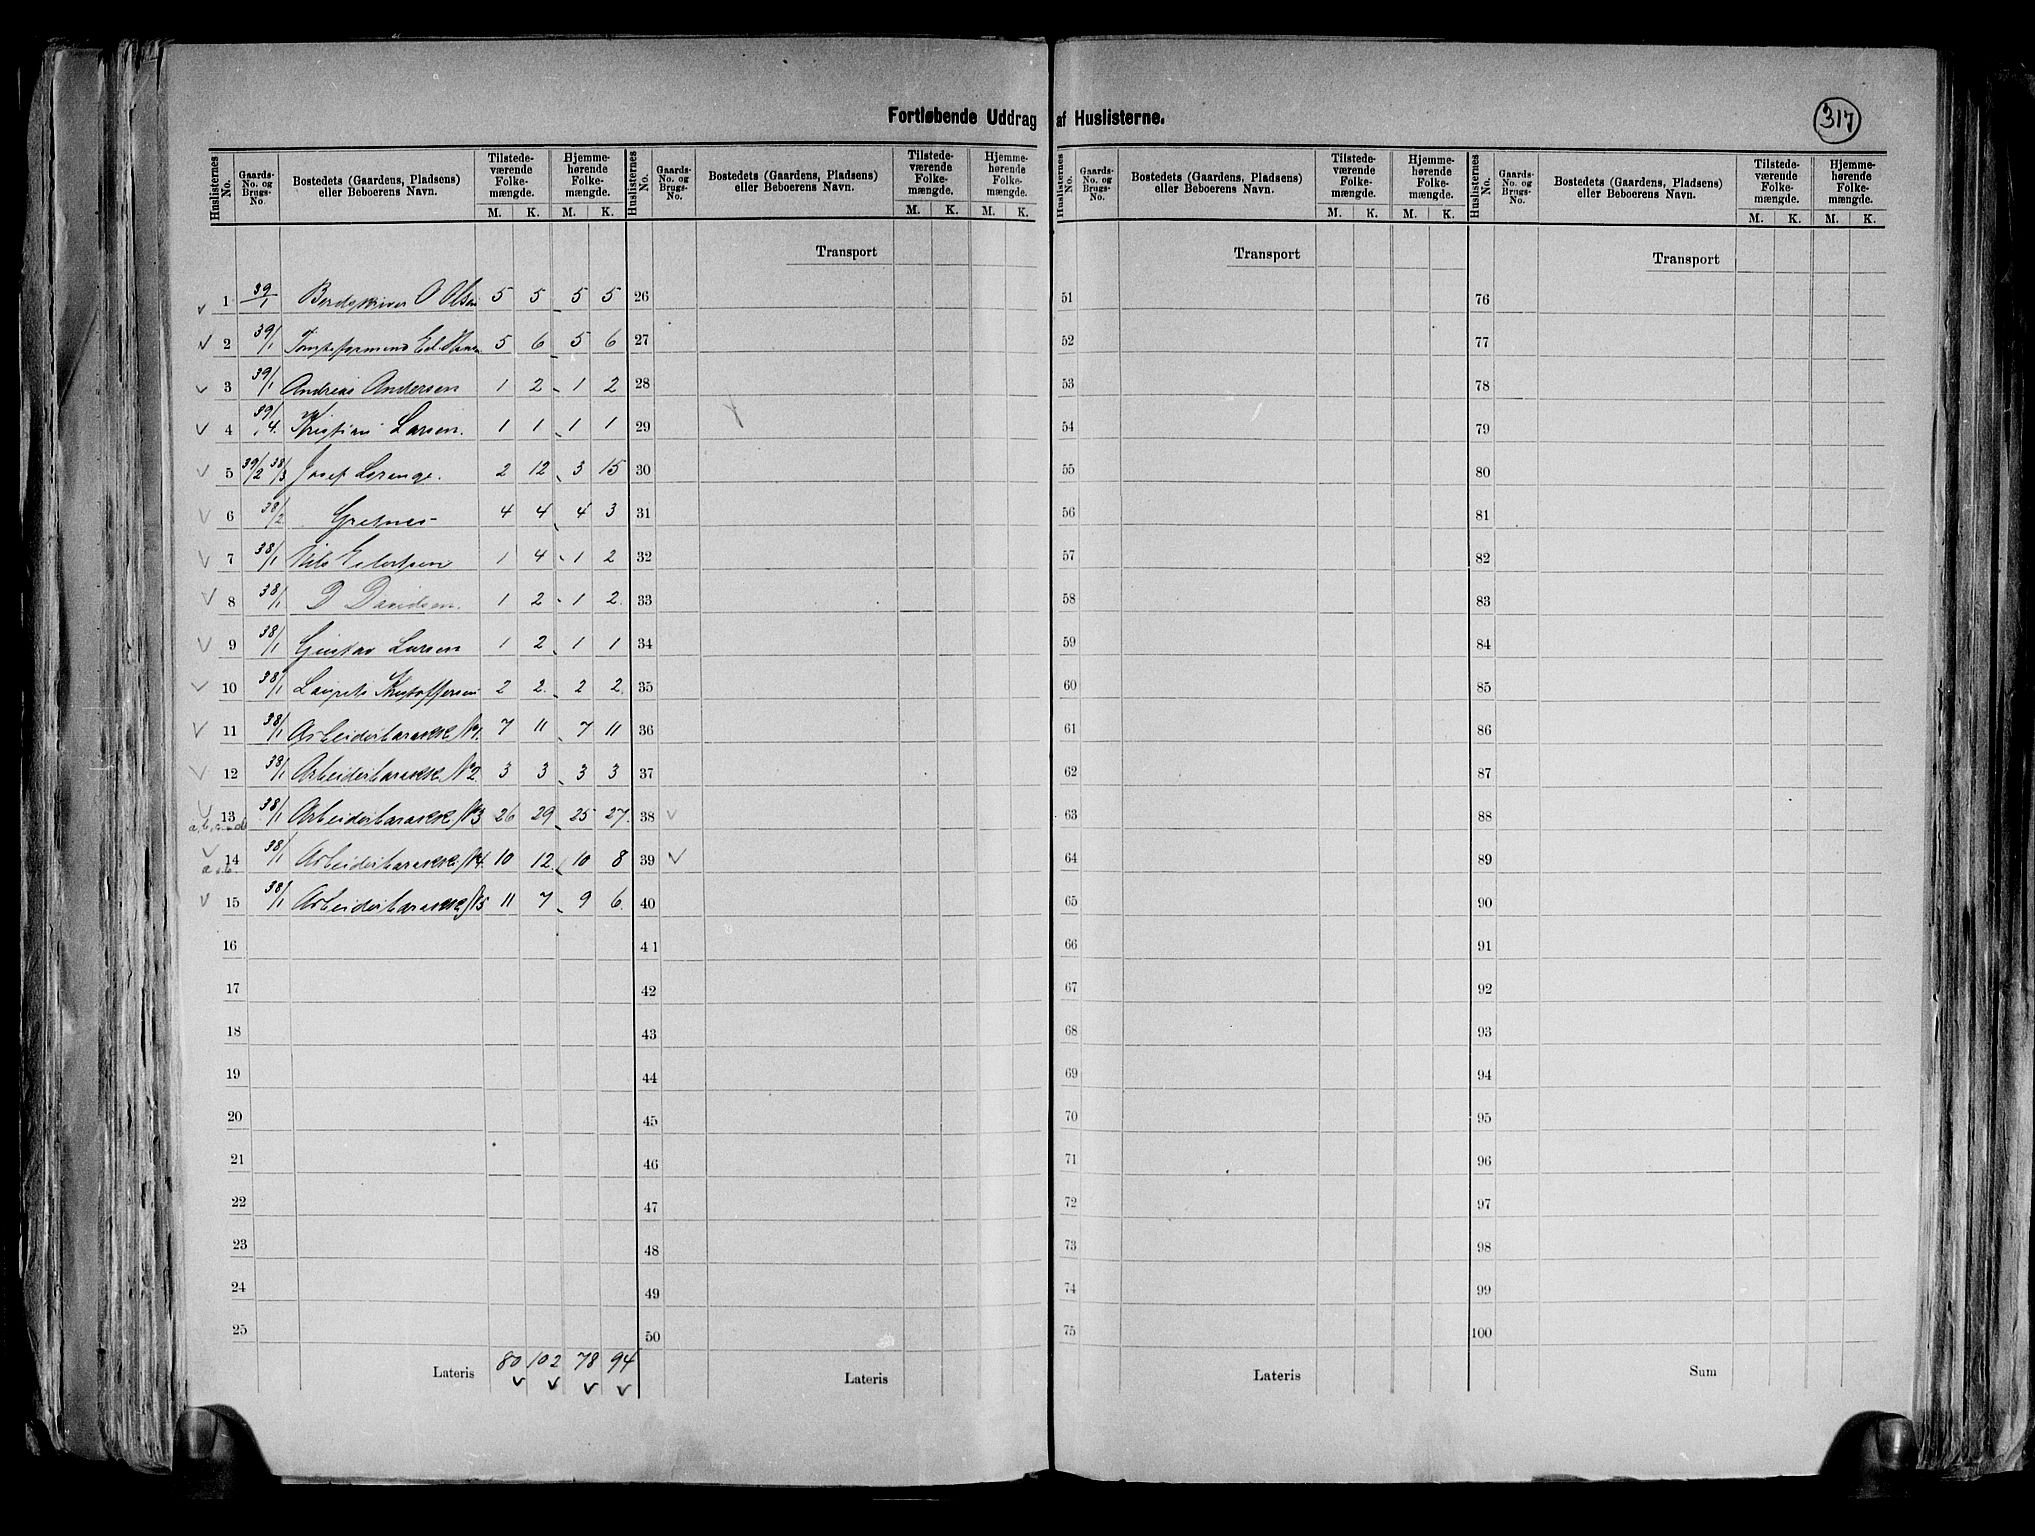 Fortløbende Uddrag af Huslisterne.
317
Huslisternes No. | Gaards-No. og Brugs-No. | Bostedets (Gaardens, Pladsens) eller Beboerens Navn. | Tilstedeværende Folkemængde. M. K. | Hjemmehørende Folkemængde. M. K.
Huslisternes No. | Gaards-No. og Brugs-No. | Bostedets (Gaardens, Pladsens) eller Beboerens Navn. | Tilstedeværende Folkemængde. M. K. | Hjemmehørende Folkemængde. M. K.
Huslisternes No. | Gaards-No. og Brugs-No. | Bostedets (Gaardens, Pladsens) eller Beboerens Navn. | Tilstedeværende Folkemængde. M. K. | Hjemmehørende Folkemængde. M. K.
Huslisternes No. | Gaards-No. og Brugs-No. | Bostedets (Gaardens, Pladsens) eller Beboerens Navn. | Tilstedeværende Folkemængde. M. K. | Hjemmehørende Folkemængde. M. K.
Transport Transport Transport
✓ 1 39/1 O Olsen 5 5 5 5 26 51 76
✓ 2 39/1 Ed. Hansen 5 6 5 6 27 52 77
✓ 3 39/1 Andreas Andersen 1 2 1 2 28 53 78
✓ 4 39/1,4. Kristian Larsen. 1 1 1 1 29 54 79
✓ 5 39/2 38/3 Josef Lorange. 2 12 3 15 30 55 80
✓ 6 38/2 Gretnes 4 4 4 3 31 56 81
✓ 7 38/1 Nils Eilertsen 1 4 1 2 32 57 82
✓ 8 38/1 D Davidsen. 1 2 1 2. 33 58 83
✓ 9 38/1 Gustav Larsen 1 2 1 1 34 59 84
✓ 10 38/1 Laurits Kristoffersen 2 2. 2 2. 35 60 85
✓ 11 38/1 Arbeiderbarakke N1. 7 11 7 11 36 61 86
✓ 12 38/1 Arbeiderbarakke N2 3 3 3 3 37 62 87
✓ 13 a, b, c, d 38/1 Arbeiderbarakke N3 26 29 25 27. 38 ✓ 63 88
✓ 14 a, b. 38/1 Arbeiderbarakke N4. 10 12. 10 8 39 ✓ 64 89
✓ 15 38/1 Arbeiderbarakke N5 11 7 9 6. 40 65 90
16 41 66 91
17 42 67 92
18 43 68 93
19 44 69 94
20 45 70 95
21 46 71 96
22 47 72 97
23 48 73 98
24 49 74 99
25 50 75 100
Lateris 80 102 78 94 Lateris Lateris Sum
✓ ✓ ✓ ✓